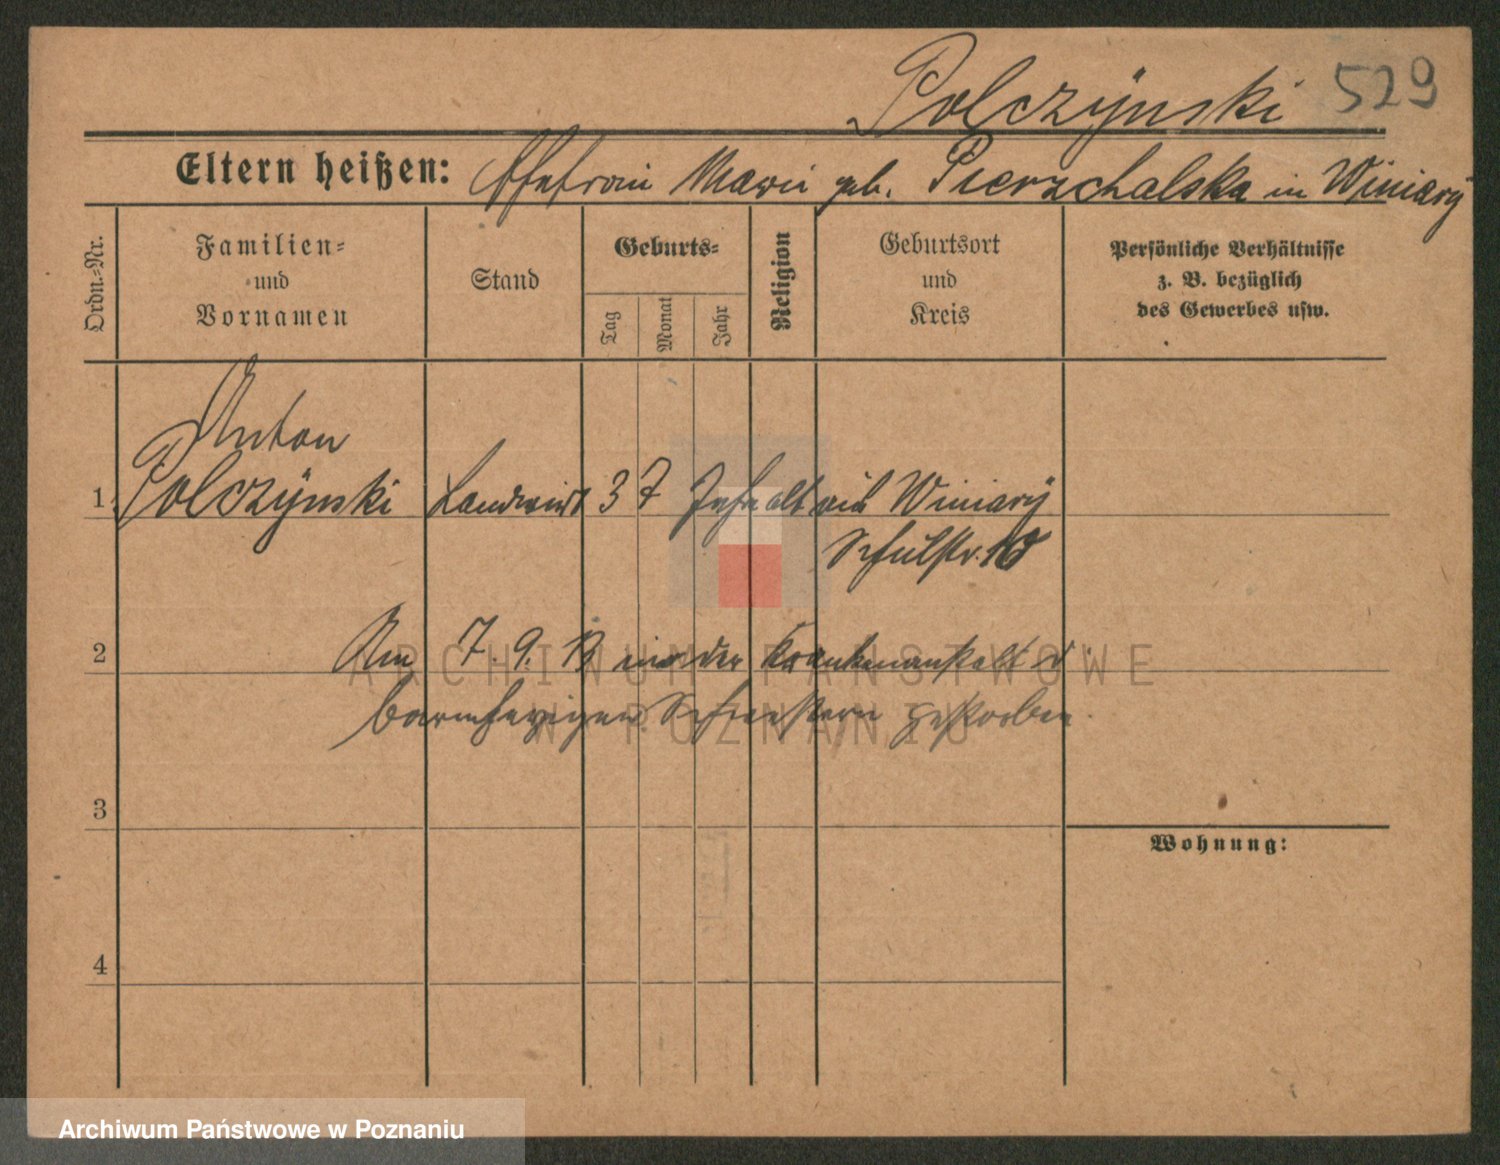 Polczÿnski 529
Eltern heißen: Ehefrau Marie geb. Pierzchalska in Winiarÿ
Ordn.-Nr.
Familien- und Vornamen
Stand
Geburts-
Tag
Monat
Jahr
Religion
Geburtsort und Kreis
Persönliche Verhältnisse z. B. bezüglich des Gewerbes usw.
Anton
1 Polczÿnski Landwirt 37 Jahre alt aus Winiarÿ
Schulstr.
2 Am 7. 9. 13 in der Krankenanstalt d.
barmherzigen Schwestern gestorben.
3
Wohnung:
4
ARCHIWUM PAŃSTWOWE
W POZNANIU
Archiwum Państwowe w Poznaniu